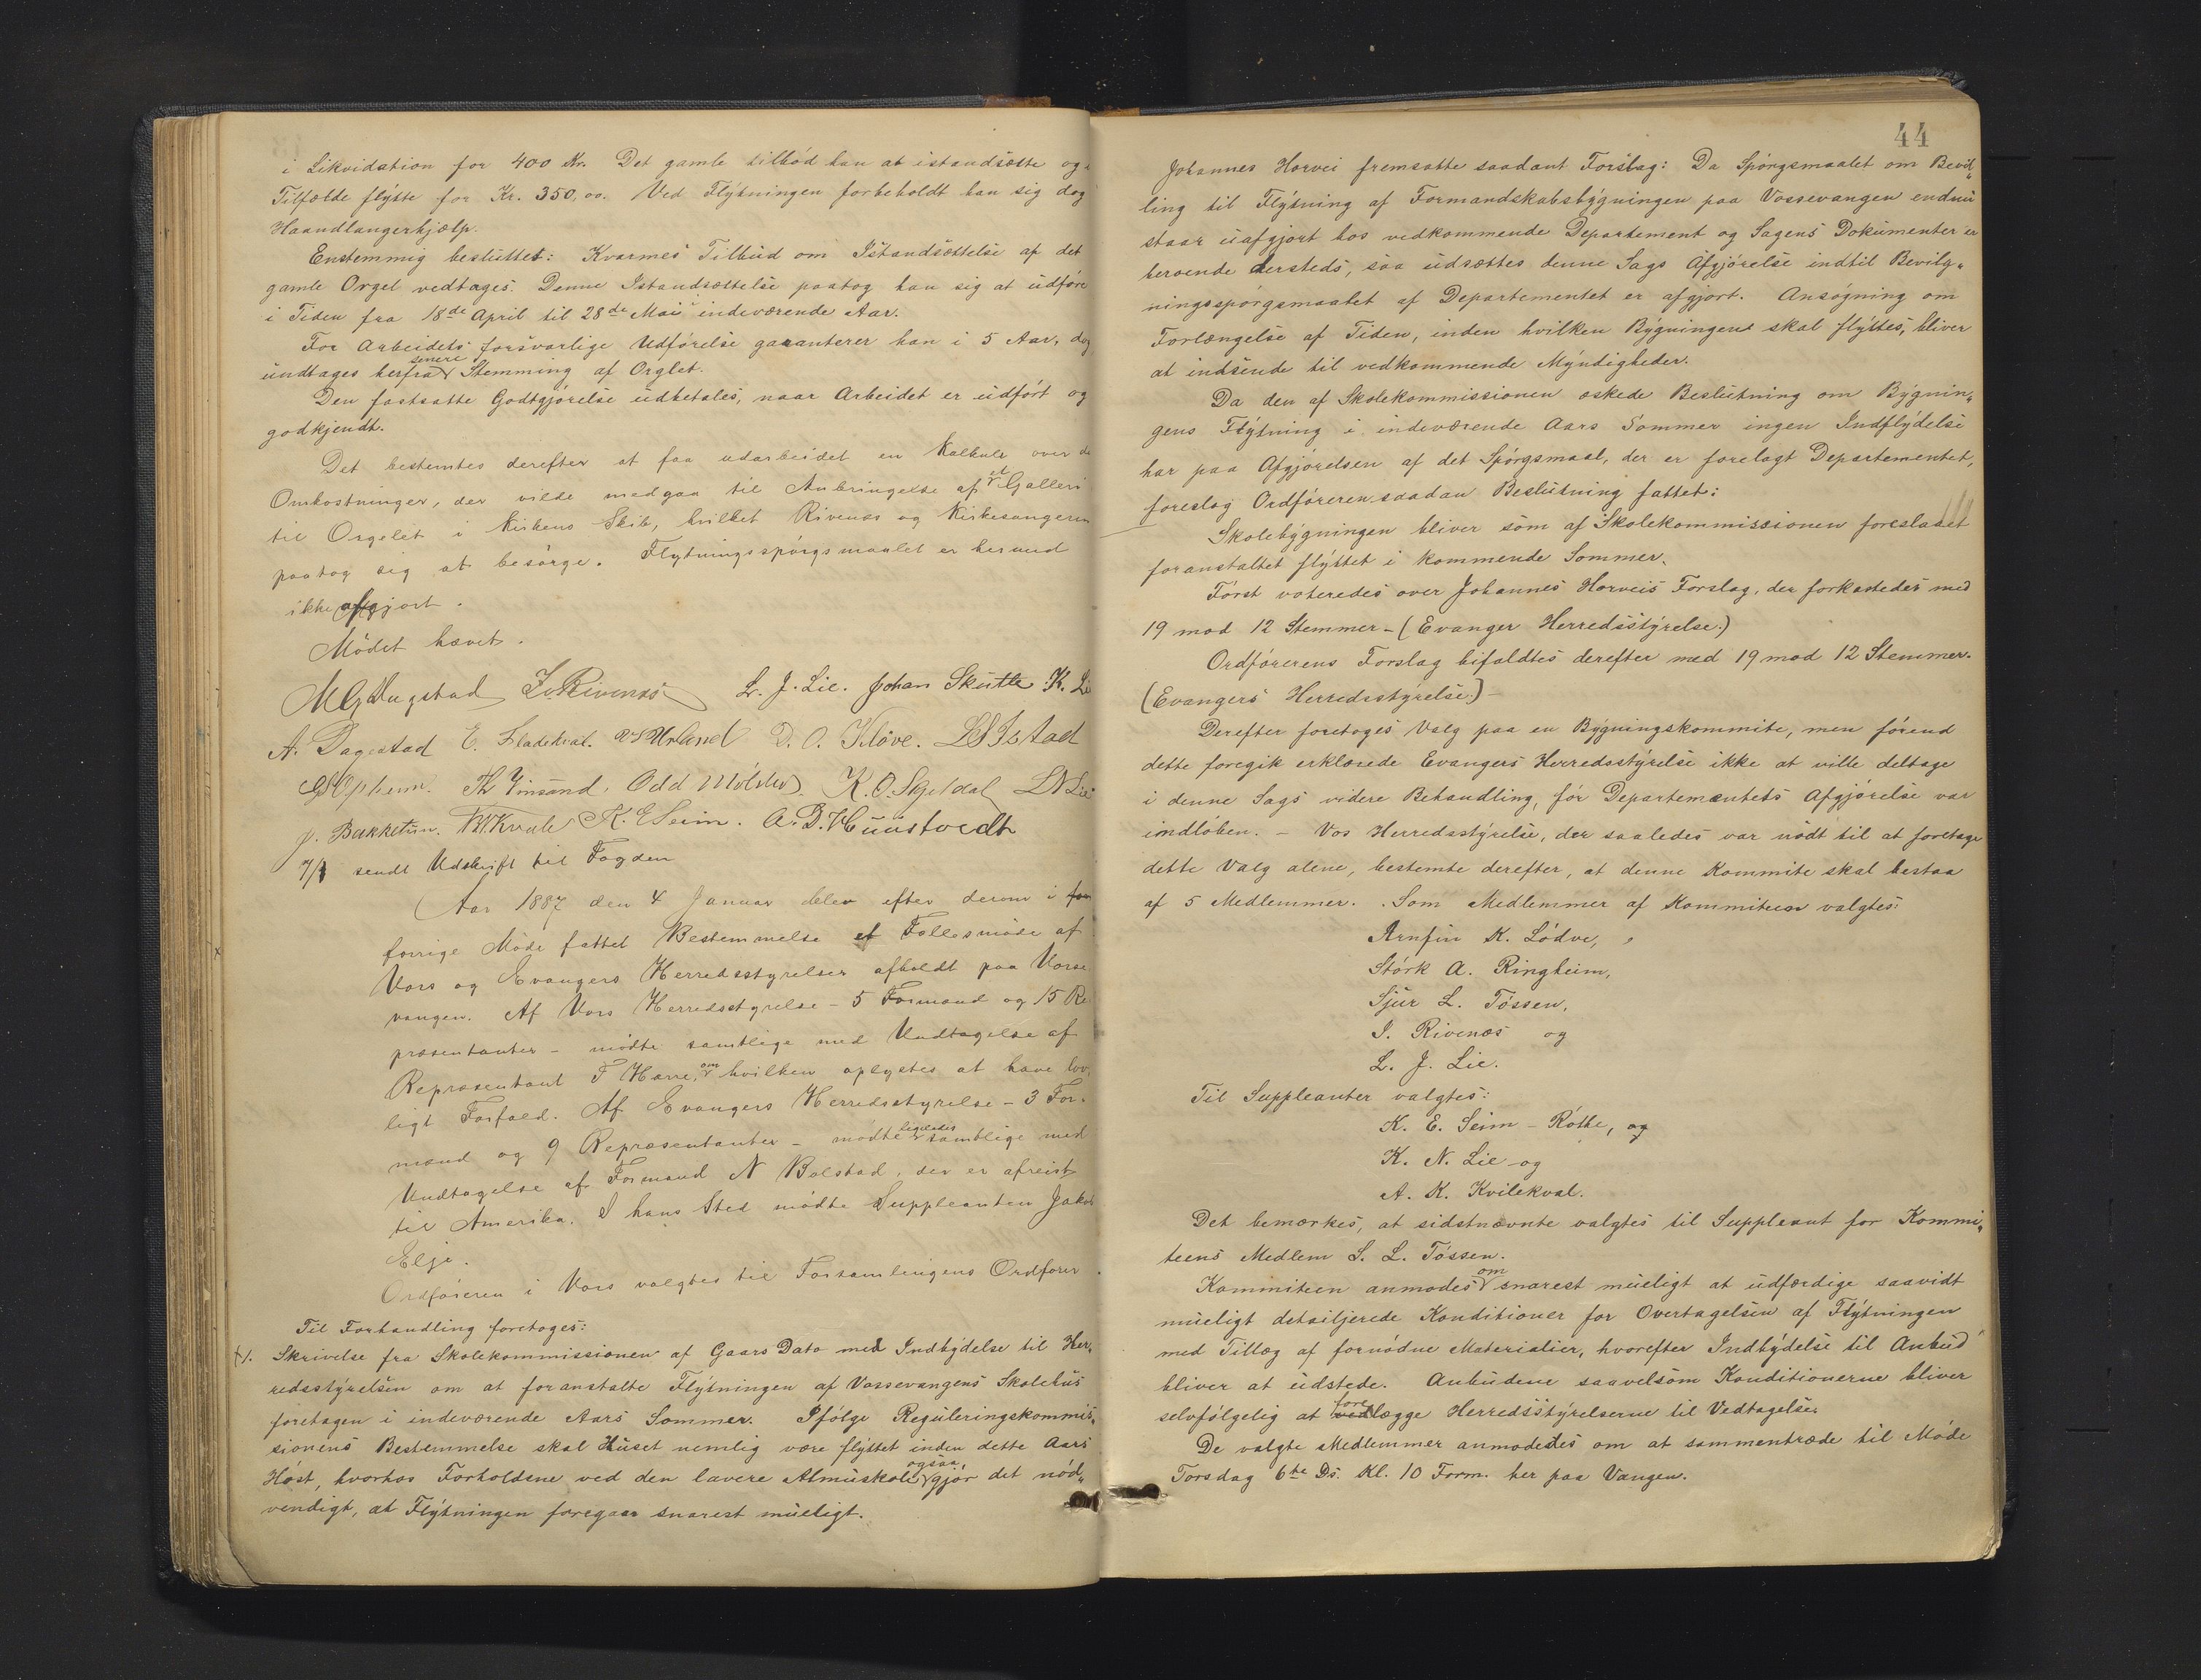 i Likvidation for 400 Kr. Det gamle tilbód han at istandsætte og i
Tilfælde flytte for Kr. 350,00. Ved Flytningen forbeholdt han sig dog
Haandlangerhjælp.
Enstemmig besluttet: Kvarmes Tilbud om Istandsættelse af det
gamle Orgel vedtages. Denne Istandsættelse paatog han sig at udføre
i Tiden fra 18de April til 28de Mai indeværende Aar.
For Arbeidets forsvarlige Udførelse garanterer han i 5 Aar, dog
undtages herfra senere Stemming af Orglet.
Den fastsatte Godtgjørelse udbetales, naar Arbeidet er udført og
godkjendt.
Det bestemtes derefter at faa udarbeidet en Kalkule over de
Omkostninger, der vilde medgaa til Anbringelse af et Galleri
til Orgelet i Kirkens Skib, hvilket Rivenæs og Kirkesangeren
paatog sig at besørge. Flytningsspørgsmaalet er hermed
ikke afgjort.
Mödet hævet.
M G Daugstad I. Rivenæs L. J. Lie. Johan Skutle K. Li
A. Dagestad E. Fladekval. Urland D. O. Kløve. Istad
Opheim. Th Vinsand, Odd Mölster. K. O. Skjeldal L N Lie
J. Bakketun. Kvale K. E Seim. A. B. Hünstvedt
7/1 sendt Udskrift til Fogden
Aar 1887 den 4 Januar blev efter derom i for
forrige Møde fattet Bestemmelse et Fællesmøde af
Vors og Evangers Herredsstyrelser afholdt paa Vosse
vangen. Af Vors Herredsstyrelse - 5 Formænd og 15 Re
præsentanter - mødte samtlige med Undtagelse af
Repræsentant T Hærre, om hvilken oplystes at have lov,
ligt Forfald. Af Evangers Herredsstyrelse - 3 For-
mænd og 9 Repræsentanter - mødte ligeledes samtlige med
Undtagelse af Formand N Bolstad, der er afreist
til Amerika. I hans Sted mødte Suppleanten Jakob
Elje.
Ordføreren i Vors valgtes til Forsamlingens Ordfører.
Til Forhandling foretoges:
1. Skrivelse fra Skolekommissionen af Gaars Dato med Indbydelse til Her„
redsstyrelsen om at foranstalte Flytningen af Vossevangens Skolehus
foretagen i indeværende Aars Sommer. Ifølge Reguleringskommis„
sionens Bestemmelse skal Huset nemlig være flyttet inden dette Aars
Høst, hvorhos Forholdene ved den lavere Almuskole ogsaa gjør det nød„
vendigt, at Flytningen foregaar snarest mueligt.
44
Johannes Horvei fremsatte saadant Forslag: Da Spørgsmaalet om Bevil„
ling til Flytning af Formandskabsbygningen paa Vossevangen endnu
staar uafgjort hos vedkommende Departement og Sagens Dokumenter er
beroende dersteds, saa udsættes denne Sags Afgjørelse indtil Bevilg„
ningsspørgsmaalet af Departementet er afgjort. Ansøgning om
Forlængelse af Tiden, inden hvilken Bygningens skal flyttes, bliver
at indsende til vedkommende Myndigheder.
Da den af Skolekommissionen øskede Beslutning om Bygnin„
gens Flytning i indeværende Aars Sommer ingen Indflydelse
har paa Afgjørelsen af det Spørgsmaal, der er forelagt Departementet,
foreslog Ordføreren saadan Beslutning fattet:
Skolebygningen bliver som af Skolekommissionen foreslaaet
foranstaltet flyttet i kommende Sommer.
Først voteredes over Johannes Horveis Forslag, der forkastedes med
19 mod 12 Stemmer - (Evanger Herredsstyrelse.)
Ordførerens Forslag bifaldtes derefter med 19 mod 12 Stemmer.
(Evangers Herredsstyrelse.) -
Derefter foretoges Valg paa en Bygningskommite, men førend
dette foregik erklærede Evangers Herredsstyrelse ikke at ville deltage
i denne Sags videre Behandling, før Departementets Afgjørelse var
indløben. - Vos Herredsstyrelse, der saaledes var nødt til at foretage
dette Valg alene, bestemte derefter, at denne Kommite skal bestaa
af 5 Medlemmer. Som Medlemmer af Kommiteen valgtes:
Arnfin K. Lødve,
Størk A. Ringheim,
Sjur L. Tøssen,
I. Rivenæs og
L. J. Lie.
Til Suppleanter valgtes:
K. E. Seim - Rôthe, og
K. N. Lie og
A. K. Kvilekval.
Det bemærkes, at sidstnævnte valgtes til Suppleant for Kommi„
teens Medlem S. L. Tøssen.
Kommiteen anmodes om snarest mueligt at udfærdige saavidt
mueligt detailjerede Konditioner for Overtagelsen af Flytningen
med Tillæg af fornødne Materialier, hvorefter Indbydelse til Anbud
bliver at udstede. Anbudene saavelsom Konditionerne bliver
selvfølgelig at vedlægge fore Herredsstyrelserne til Vedtagelse.
De valgte Medlemmer anmodedes om at sammentræde til Møde
Torsdag 6te Ds. Kl. 10 Form. her paa Vangen.